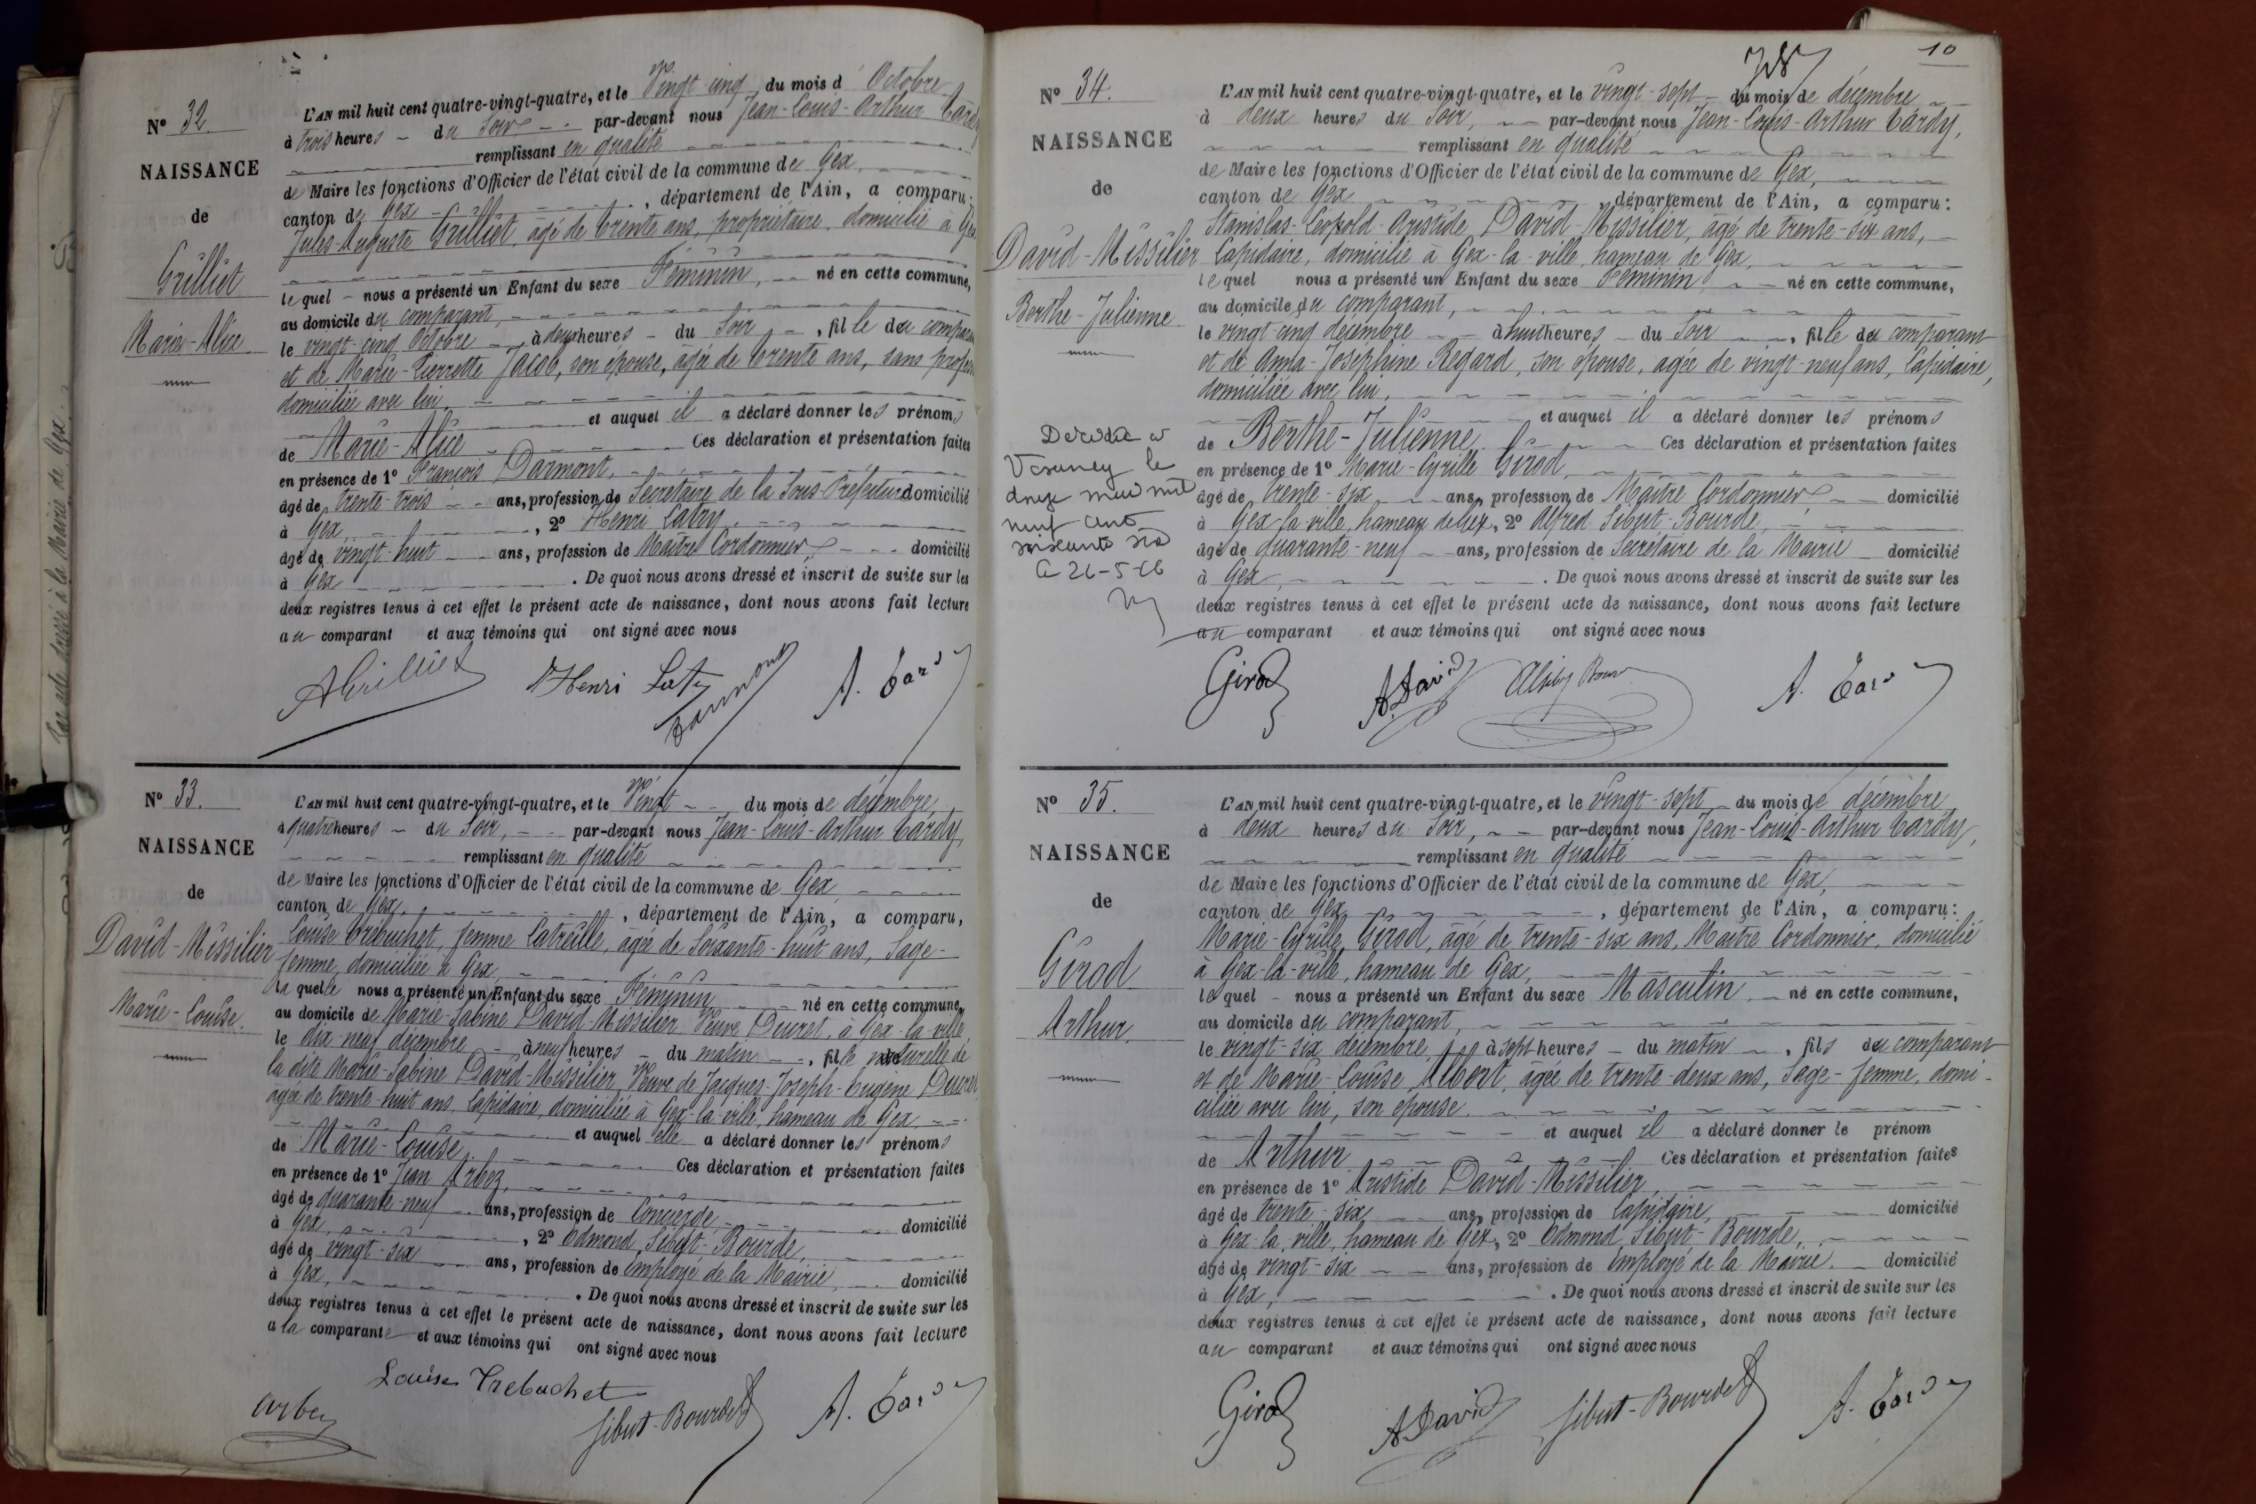 N° 32.
NAISSANCE
de
Grilliet
Marie-Alice
L'AN mil huit cent quatre-vingt-quatre, et le Vingt cinq du mois d'Octobre
à trois heures du Soir par-devant nous Jean-Louis-Arthur Tardy
remplissant en qualité
de Maire les fonctions d'Officier de l'état civil de la commune de Gex
canton de Gex, département de l'Ain, a comparu:
Jules-Auguste Grilliet, âgé de trente ans, propriétaire, domicilié à Gex
lequel nous a présenté un Enfant du sexe Féminin, né en cette commune,
au domicile du comparant,
le vingt-cinq Octobre, à deux heures du Soir, fille du comparant
et de Marie-Pierrette Jacob, son épouse, âgée de trente ans, sans profession
domiciliée avec lui,
et auquel il a déclaré donner les prénoms
de Marie-Alice Ces déclaration et présentation faites
en présence de 1° François Darmont,
âgé de trente-trois ans, profession de Secrétaire de la Sous-Préfecture domicilié
à Gex, 2° Henri Latry
âgé de vingt-huit ans, profession de Maître Cordonnier, domicilié
à Gex. De quoi nous avons dressé et inscrit de suite sur les
deux registres tenus à cet effet le présent acte de naissance, dont nous avons fait lecture
au comparant et aux témoins qui ont signé avec nous
AGrilliet Henri Laty Darmont A. Tardy
N° 33.
NAISSANCE
de
David-Missilier
Marie-Louise.
L'AN mil huit cent quatre-vingt-quatre, et le Vingt du mois de décembre
à quatre heures du Soir, par-devant nous Jean-Louis-Arthur Tardy,
remplissant en qualité
de Maire les fonctions d'Officier de l'état civil de la commune de Gex,
canton de Gex, département de l'Ain, a comparu,
Louise Trébuchet, femme Latreille, âgée de Soixante-huit ans, Sage-
femme, domiciliée à Gex
laquelle nous a présenté un Enfant du sexe Féminin né en cette commune,
au domicile de Marie-Sabine David-Missilier Veuve Ducret, à Gex-la-ville,
le dix neuf décembre à neuf heures du matin, fille naturelle de
la dite Marie-Sabine David-Missilier, Veuve de Jacques-Joseph-Eugène Ducret
âgée de trente-huit ans, Lapidaire, domiciliée à Gex-la-ville, hameau de Gex
et auquel elle a déclaré donner les prénoms
de Marie-Louise. Ces déclaration et présentation faites
en présence de 1° Jean Arbez,
âgé de quarante-neuf ans, profession de Concierge, domicilié
à Gex, 2° Edmond Sibut-Bourde
âgé de vingt-six ans, profession de Employé de la Mairie domicilié
à Gex, De quoi nous avons dressé et inscrit de suite sur les
deux registres tenus à cet effet le présent acte de naissance, dont nous avons fait lecture
a la comparante et aux témoins qui ont signé avec nous
Louise Trebuchet
Arbez Sibut-Bourde A. Tardy
10
N° 34.
NAISSANCE
de
David-Missilier
Berthe-Julienne
L'AN mil huit cent quatre-vingt-quatre, et le vingt-sept du mois de décembre
à deux heures du Soir, par-devant nous Jean-Louis-Arthur Tardy,
remplissant en qualité
de Maire les fonctions d'Officier de l'état civil de la commune de Gex,
canton de Gex département de l'Ain, a comparu:
Stanislas-Léopold-Aristide David-Missilier, âgé de trente-six ans,
Lapidaire, domicilié à Gex-la-ville, hameau de Gex,
lequel nous a présenté un Enfant du sexe Féminin né en cette commune,
au domicile du comparant,
le vingt cinq décembre à huit heures du Soir, fille du comparant
et de Anna-Joséphine Regard, son épouse, âgée de vingt-neuf ans, Lapidaire,
domiciliée avec lui,
et auquel il a déclaré donner les prénoms
de Berthe-Julienne. Ces déclaration et présentation faites
en présence de 1° Marie-Cyrille Girod,
âgé de trente-six ans, profession de Maître Cordonnier, domicilié
à Gex-la-ville, hameau de Gex, 2° Alfred Sibut-Bourde,
âgé de quarante-neuf ans, profession de Secrétaire de la Mairie domicilié
à Gex, De quoi nous avons dressé et inscrit de suite sur les
deux registres tenus à cet effet le présent acte de naissance, dont nous avons fait lecture
au comparant et aux témoins qui ont signé avec nous
Décédée à
le
douze mai mil
neuf cent
soixante six
26-5-66
Girod ADavid ASibut Bour A. Tardy
N° 35.
NAISSANCE
de
Girod
Arthur.
L'AN mil huit cent quatre-vingt-quatre, et le vingt-sept du mois de décembre
à deux heures du Soir, par-devant nous Jean-Louis-Arthur Tardy,
remplissant en qualité
de Maire les fonctions d'Officier de l'état civil de la commune de Gex,
canton de Gex, département de l'Ain, a comparu:
Marie-Cyrille Girod, âgé de trente-six ans, Maître Cordonnier, domicilié
à Gex-la-ville, hameau de Gex,
lequel nous a présenté un Enfant du sexe Masculin né en cette commune,
au domicile du comparant,
le vingt-six décembre, à sept heures du matin, fils du comparant
et de Marie-Louise Albert, âgée de trente-deux ans, Sage-femme, domi-
ciliée avec lui, son épouse.
et auquel il a déclaré donner le prénom
de Arthur Ces déclaration et présentation faites
en présence de 1° Aristide David-Missilier,
âgé de trente-six ans, profession de Lapidaire, domicilié
à Gex-la-ville, hameau de Gex, 2° Edmond Sibut-Bourde,
âgé de vingt-six ans, profession de Employé de la Mairie. domicilié
à Gex, De quoi nous avons dressé et inscrit de suite sur les
deux registres tenus à cet effet le présent acte de naissance, dont nous avons fait lecture
au comparant et aux témoins qui ont signé avec nous
Girod ADavid Sibut-Bourde A. Tardy